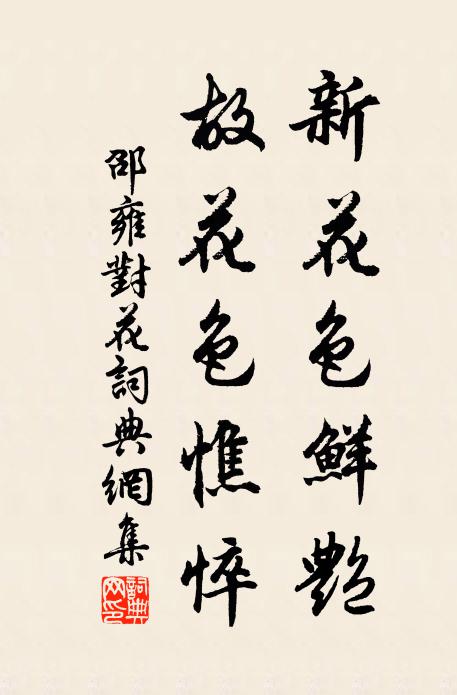 新花色鮮艷
故花色憔悴
邵雍對花詞典網集
詞典網印